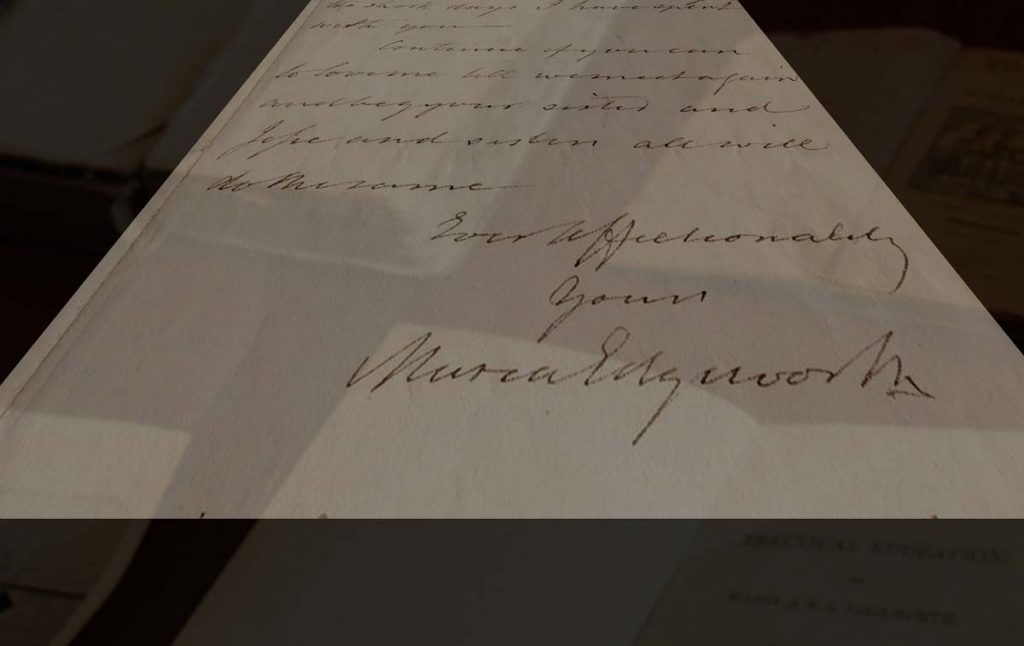 short days I have spent
with you
Continue if you can
to love me till we meet again
and beg your sister and
and sister all will
do the same
Ever Affectionately
Yours
Maria Edgeworth
PRACTICAL EDUCATION.
MARIA & R. L. EDGEWORTH.